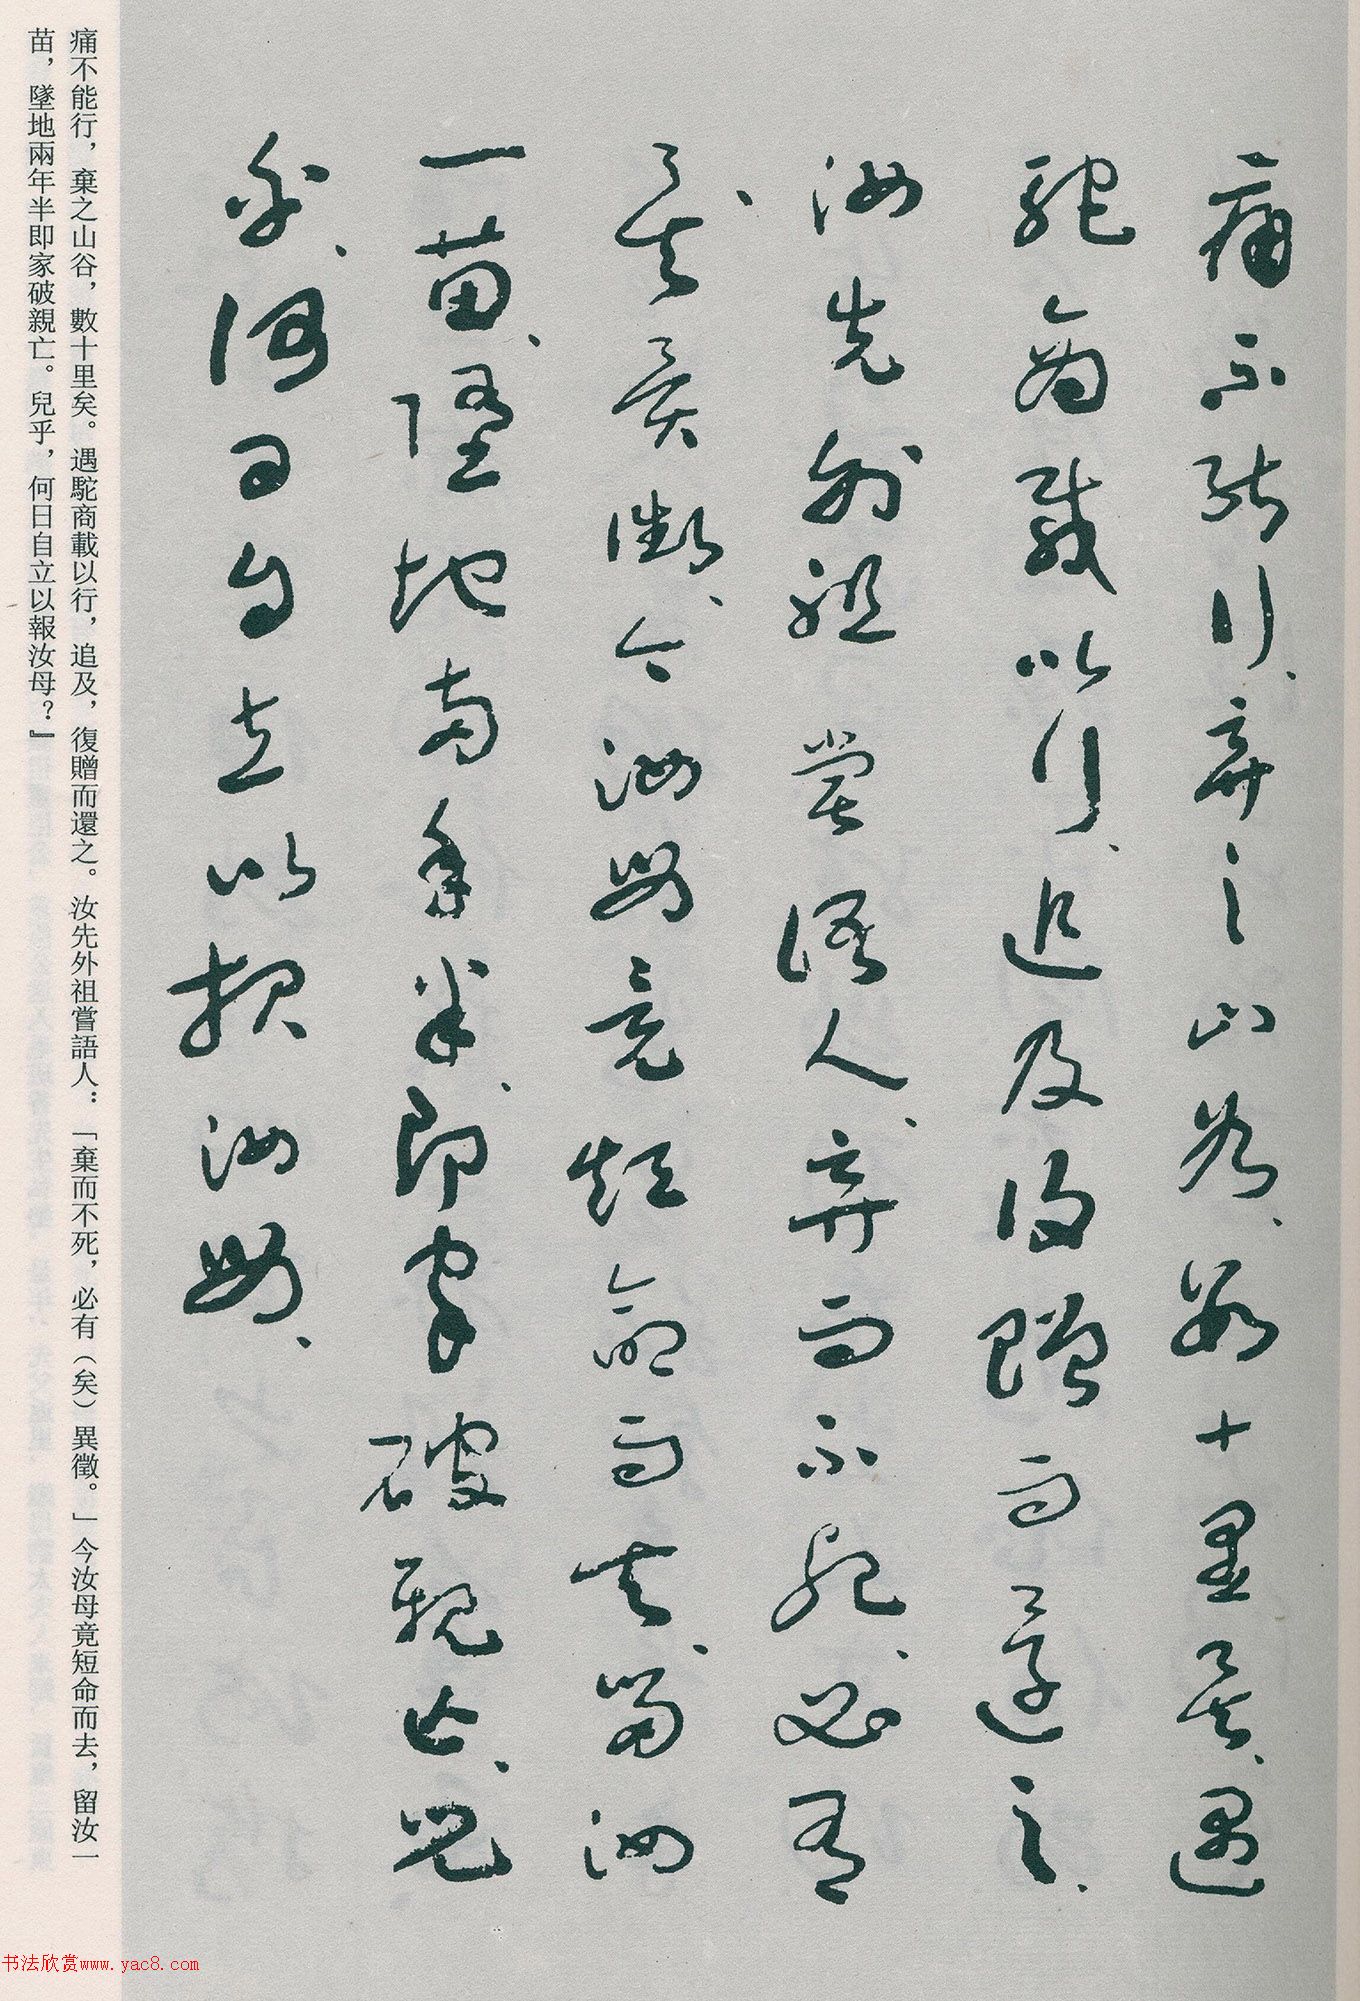 痛不能行、棄之山谷、數十里矣、遇
駝商載以行、追及復贈而還之、
汝先外祖嘗語人、棄而不死、必有
矣異徵、今汝母竟短命而去、留汝
一苗、墜地兩年半、即家破親亡、兒
乎、何日自立以報汝母、
痛不能行，棄之山谷，數十里矣。遇駝商載以行，追及，復贈而還之。汝先外祖嘗語人：「棄而不死，必有（矣）異徵。」今汝母竟短命而去，留汝一
苗，墜地兩年半即家破親亡。兒乎，何日自立以報汝母？』
书法欣赏www.yac8.com